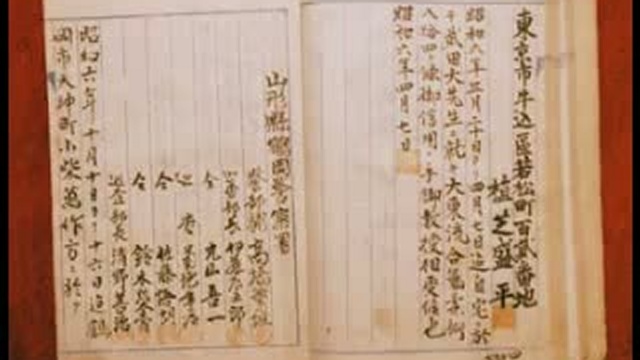 東京市牛込區若松町百弐番地
植芝盛平
昭和六年三月二十日ヨリ四月七日迄自宅ニ於
テ武田大先生ニ就キ大東流合氣柔術
八拾四ヶ條御信用ノ手御教授相受候也
昭和六年四月七日
山形縣鶴岡警察署
警部補 高橋
巡査部長 伊藤 太郎
仝 丸山喜一
巡査
仝 佐藤
仝 鈴木
巡査部長 清野
昭和六年十月十日ヨリ十六日迄鶴
岡市大神町小柴 作方ニ於テ